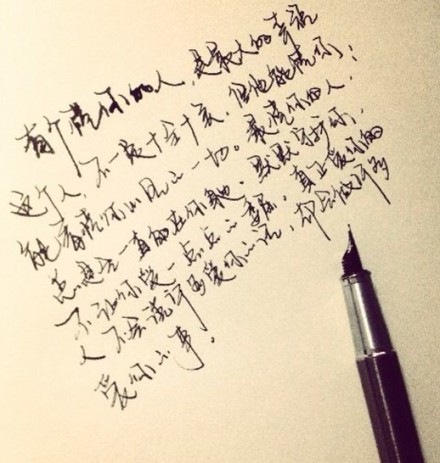 有个懂你的人，是最大的幸福
这个人，不一定十全十美，但他能读懂你；
能看懂你的一切。最懂你的人，
总是会一直的在你身边，默默守护你，
不让你受一点点的委屈。真正爱你的
人不会说许多爱你的话，却会做许多
爱你的事。